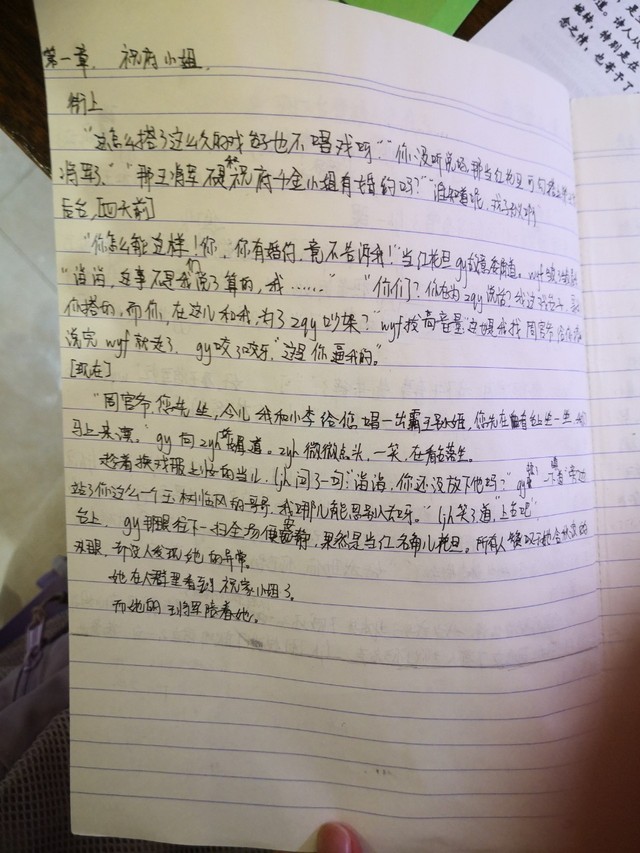 第一章. 祝府小姐.
街上
"这怎么搭了这么久的戏台也不唱戏呀""你没听说吗,那当红花旦可勾搭上
将军了.""那王将军不是和祝府千金小姐有婚约吗?""谁知道呢,
后台,[四天前]
"你怎么能这样!你,你有婚约,竟不告诉我!"当红花旦gy 道。wyf
"淌淌,这事不是我们说了算的,我……""你们?你在为zqy说话?我这戏台
你搭的,而你,在这儿和我,为了zqy吵架?"wyf拔高音量"这也是我找周官爷给你
说完wyf就走了. gy咬了咬牙."这是你逼我的。"
[现在]
"周官爷,您先坐,今儿我和小李给您唱一出霸王别姬,您先在看台上坐一坐
马上来演。"gy向zyh 道。zyh微微点头,一笑,在看台落坐.
趁着换戏服上妆的当儿 ljh问了一句:"淌淌,你还没放下他吗?"gy
了你这么一个玉树临风的哥哥,我哪儿能思别人去呀。"ljh笑了道,"上台吧"
台上, gy那眼 下一扫全场便安静,果然是当红名角儿花旦。所有人
双眼,却没人发现她的异常。
她在人群里看到祝家小姐了.
而她的王将军陪着她。
是
道。诗人从
特别是在
念之情,也寄予了